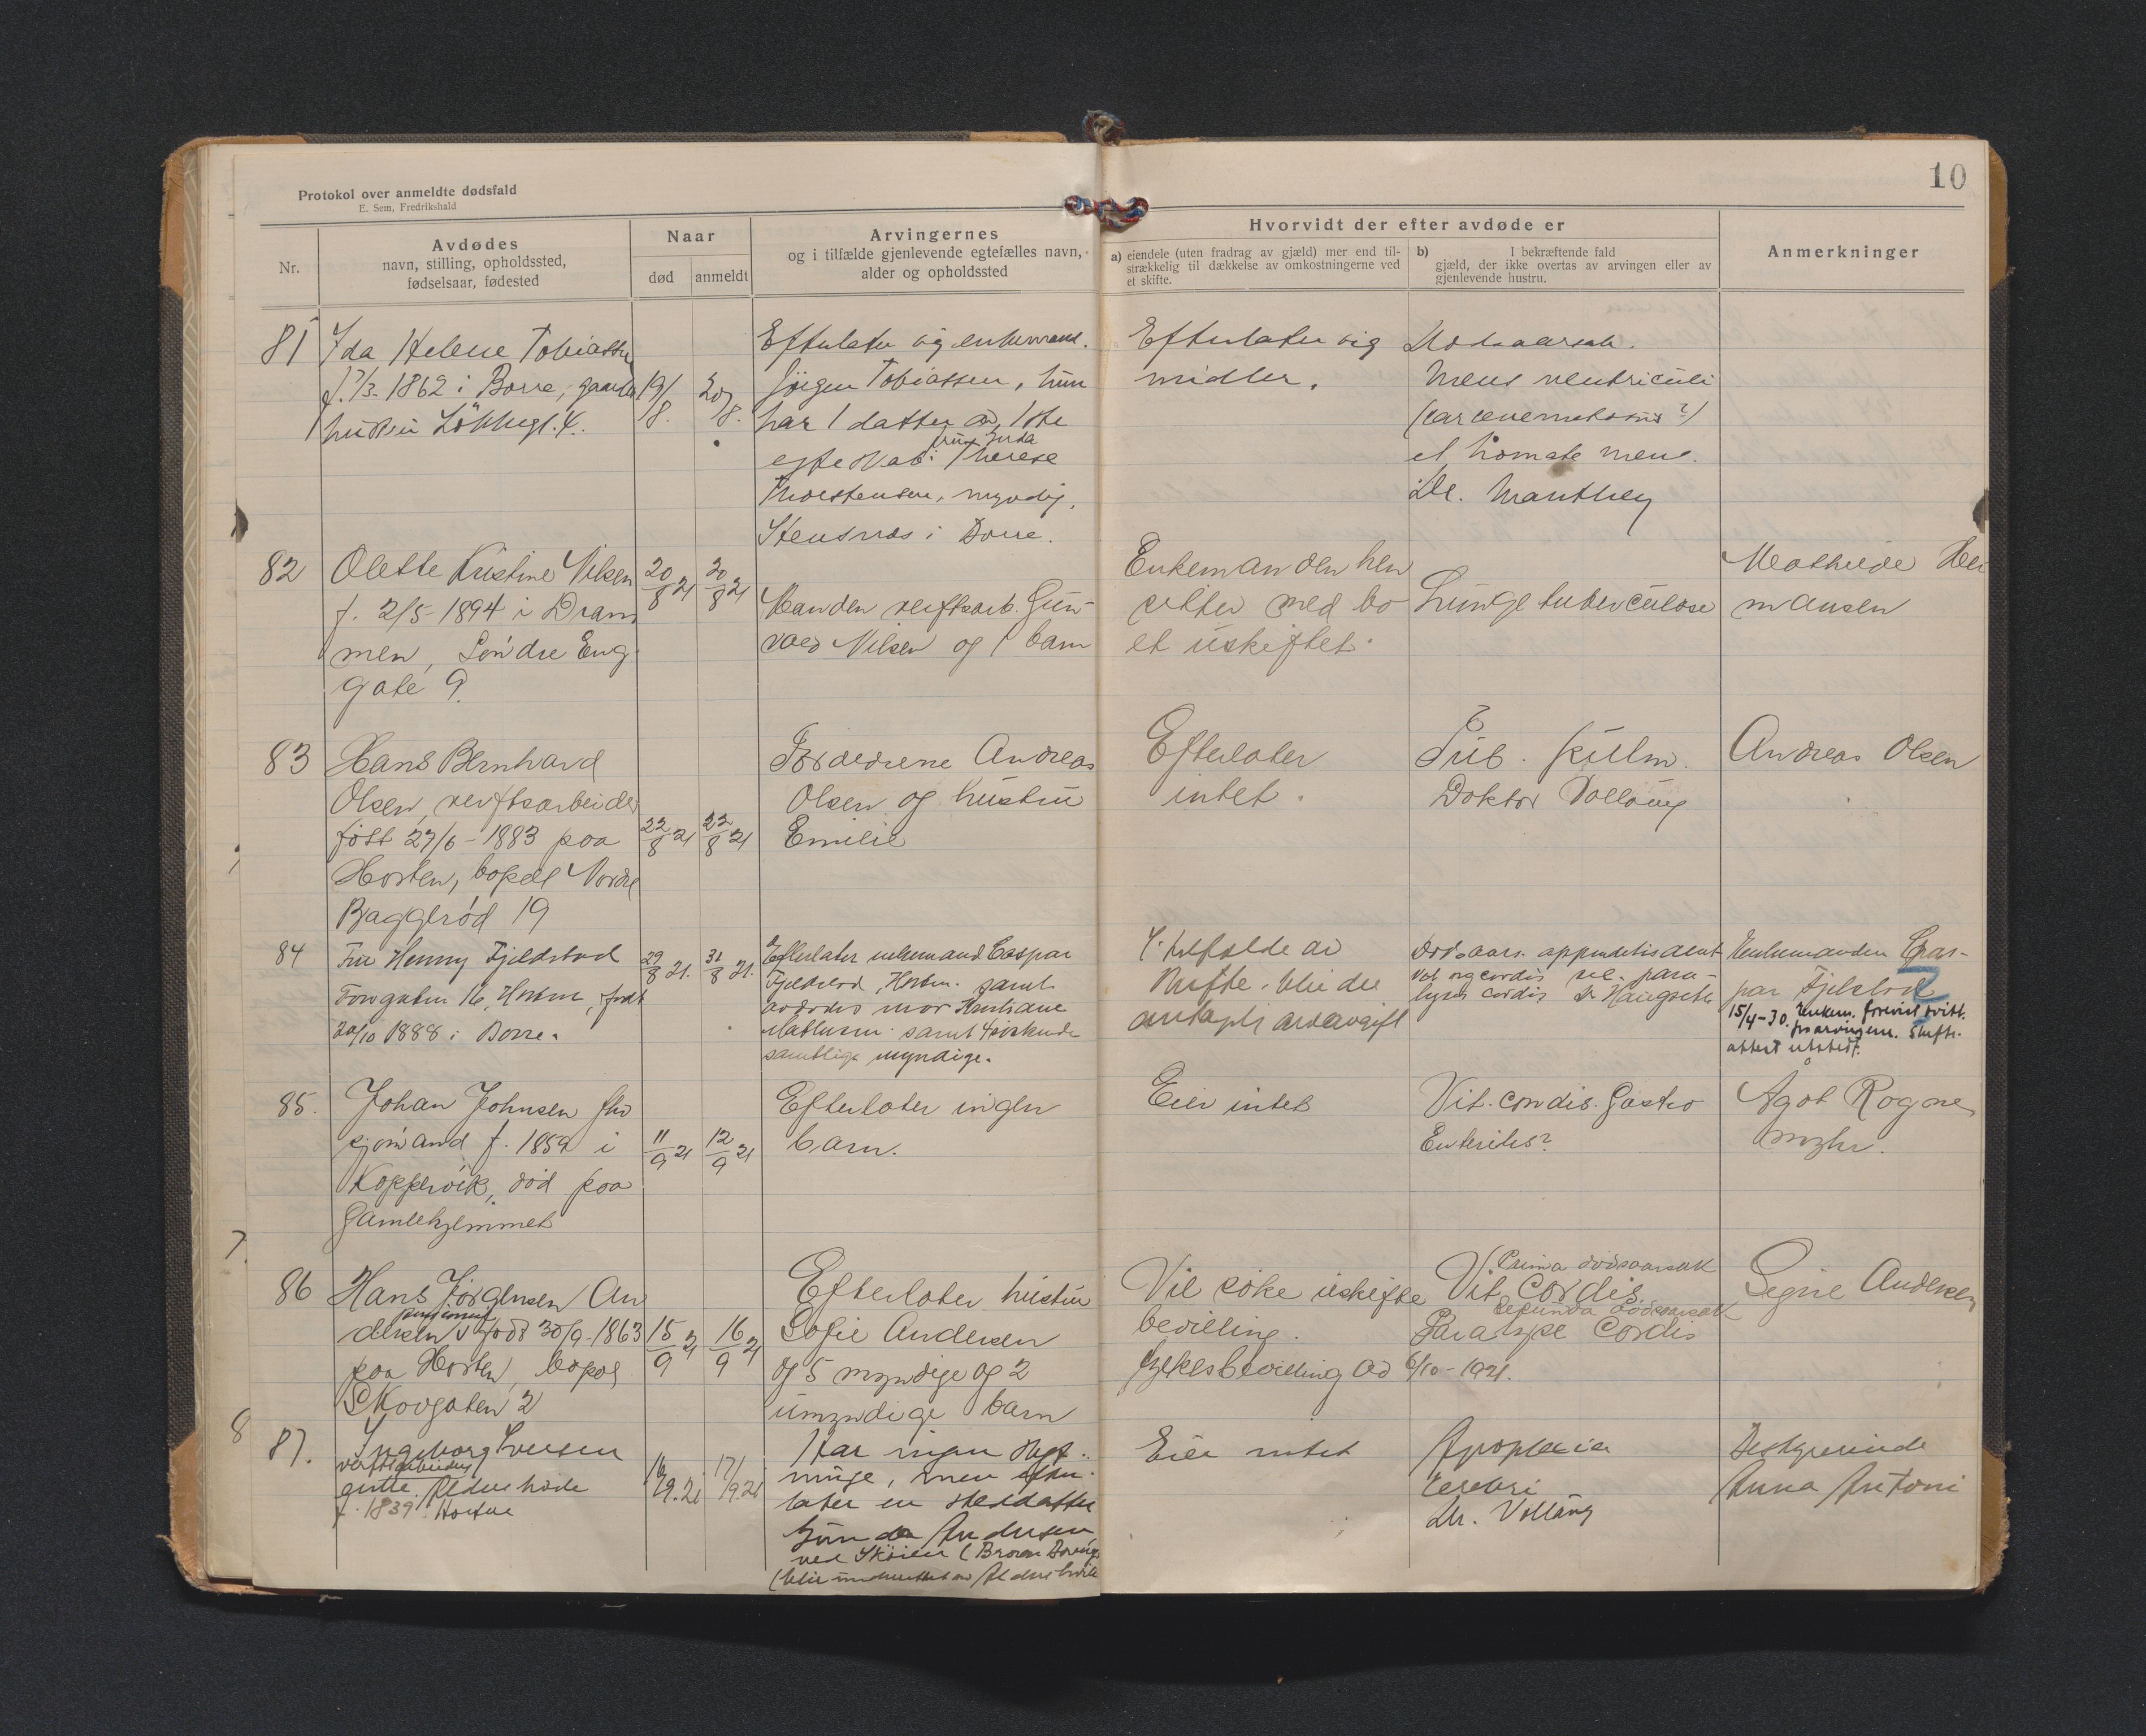 10
Protokol over anmeldte dødsfald
E. Sem, Fredrikshald
Nr.
Avdødes
navn, stilling, opholdssted,
fødselsaar, fødested
Naar
død
anmeldt
Arvingernes
og i tilfælde gjenlevende egtefælles navn,
alder og opholdssted
Hvorvidt der efter avdøde er
a) eiendele (uten fradrag av gjæld) mer end til-
strækkelig til dækkelse av omkostningerne ved
et skifte.
b) I bekræftende fald
gjæld, der ikke overtas av arvingen eller av
gjenlevende hustru.
Anmerkninger
81
Ida Helene Tobiassen
f. 7/3 1862 i Borre,
19/8.
20/8.
Efterlater sig enkemand.
Jørgen Tobiassen, hun
har 1 datter av 1ste
fru Gerda
egteskab: Therese
Thorstensen, myndig,
i Borre.
Efterlater sig
midler.
Dødsaarsak.
ventriculi
Dr. Manthey
82
Olette Kristine Nilsen
f. 2/5 1894 i Dram
men, Søndre Eng
gate 9.
20/8 21
20/8 21
Manden verftsarb. Gun-
vald Nilsen og 1 barn
Enkemanden hen
sitter med bo
et uskiftet.
Lungetuberculose
mansen
83
Hans Bernhard
Olsen, verftsarbeider
født 27/6 - 1883 paa
Horten, bopæl Nordre
Baggerød 19
22/8 21
22/8 21
Forældrene Andreas
Olsen og hustru
Emilie
Efterlater
intet.
Tub. pulm.
Doktor Vollaug
Andreas Olsen
84
Fru Henny Fjeldstad
16, Horten, født
20/10 1888 i Borre.
29/8 21.
31/8 21.
Efterlater enkemand Caspar
Fjeldstad, Horten. samt
avdødes mor Kristiane
Mathisen samt 4 søskende
samtlige myndige.
I tilfælde av
skifte. blir der
antagelig arveavgift
Dødsaars. appendicitis acut
Vit org cordis
cordis
Enkemanden Cas-
par Fjelstad
15/4-30. Enkem. forevist kvitt.
fra arvingene. Skifte-
attest utstedt.
85.
Johan Johnsen fhv
sjømand f. 1859 i
Koppervik, død paa
Gamlehjemmet
11/9 21
12/9 21
Efterlater ingen
barn.
Eier intet
Vit. cordis. Gastro
Enteritis?
Ågot Rogne
86
Hans Jørgensen An
pensionist
dersen født 30/9-1863
paa Horten, bopæl
Skovgaten 2
15/9 21
16/9 21
Efterlater hustru
Sofie Andersen
og 5 myndige og 2
umyndige barn
Vil søke uskifte
bevilling.
Fylkesbevilling av 6/10-1921.
Prima dødsaarsak
Vit. Cordis.
Sekunda dødsaarsak
Paralyse Cordis
Signe Andersen
87.
Ingeborg Iversen
verftsarbeider
f. 1839. Horten
16/9.21
17/9.21
Har ingen
men efter-
later en steddatter
Andersen
Eier intet
Apoplexia
cerebri
Dr. Vollaug
Bestyrerinde
Anna Antoni